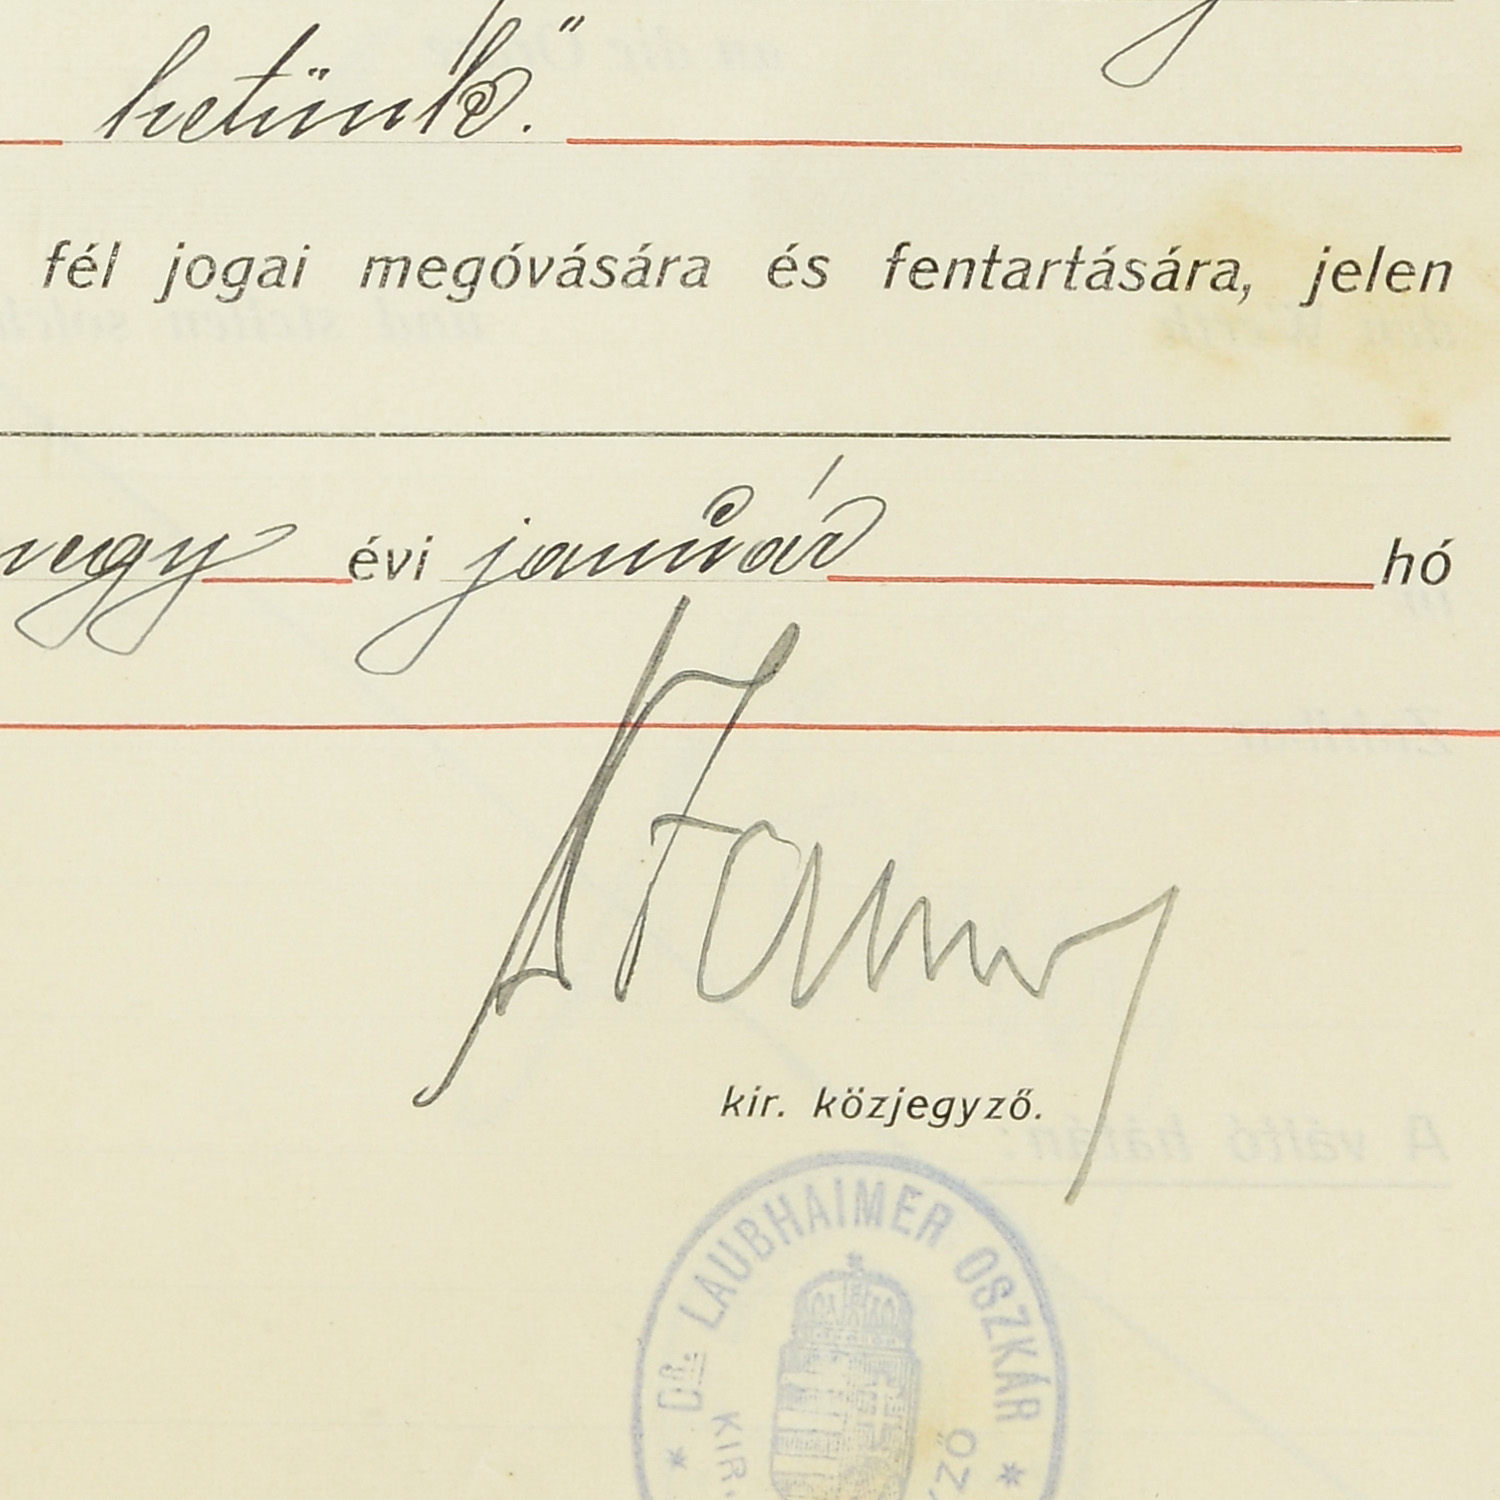 hetünk."
fél jogai megóvására és fentartására, jelen
négy évi január hó
kir. közjegyző.
Dr. LAUBHAIMER OSZKÁR
KIR.
A váltó hátán: